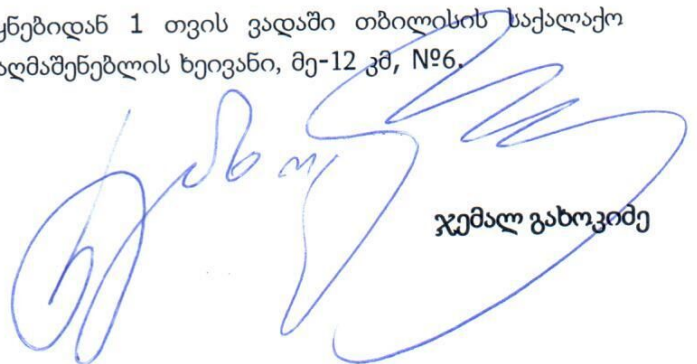 ყნებიდან 1 თვის ვადაში თბილისის საქალაქო
აღმაშენებლის ხეივანი, მე-12 კმ, №6.
ჯემალ გახოკიძე